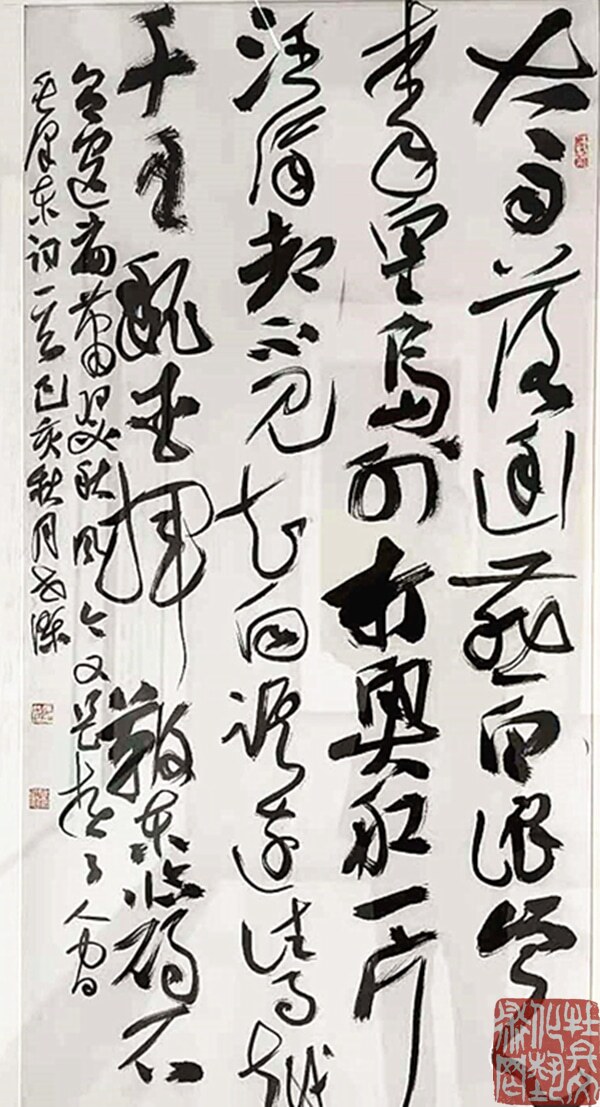 大雨落幽燕白浪滔
天秦皇岛外打鱼船一片
汪洋都不见知向谁边往事越
千年魏武挥鞭东临碣石
有遗篇萧瑟秋风今又是换了人间
毛泽东词一首己亥秋月